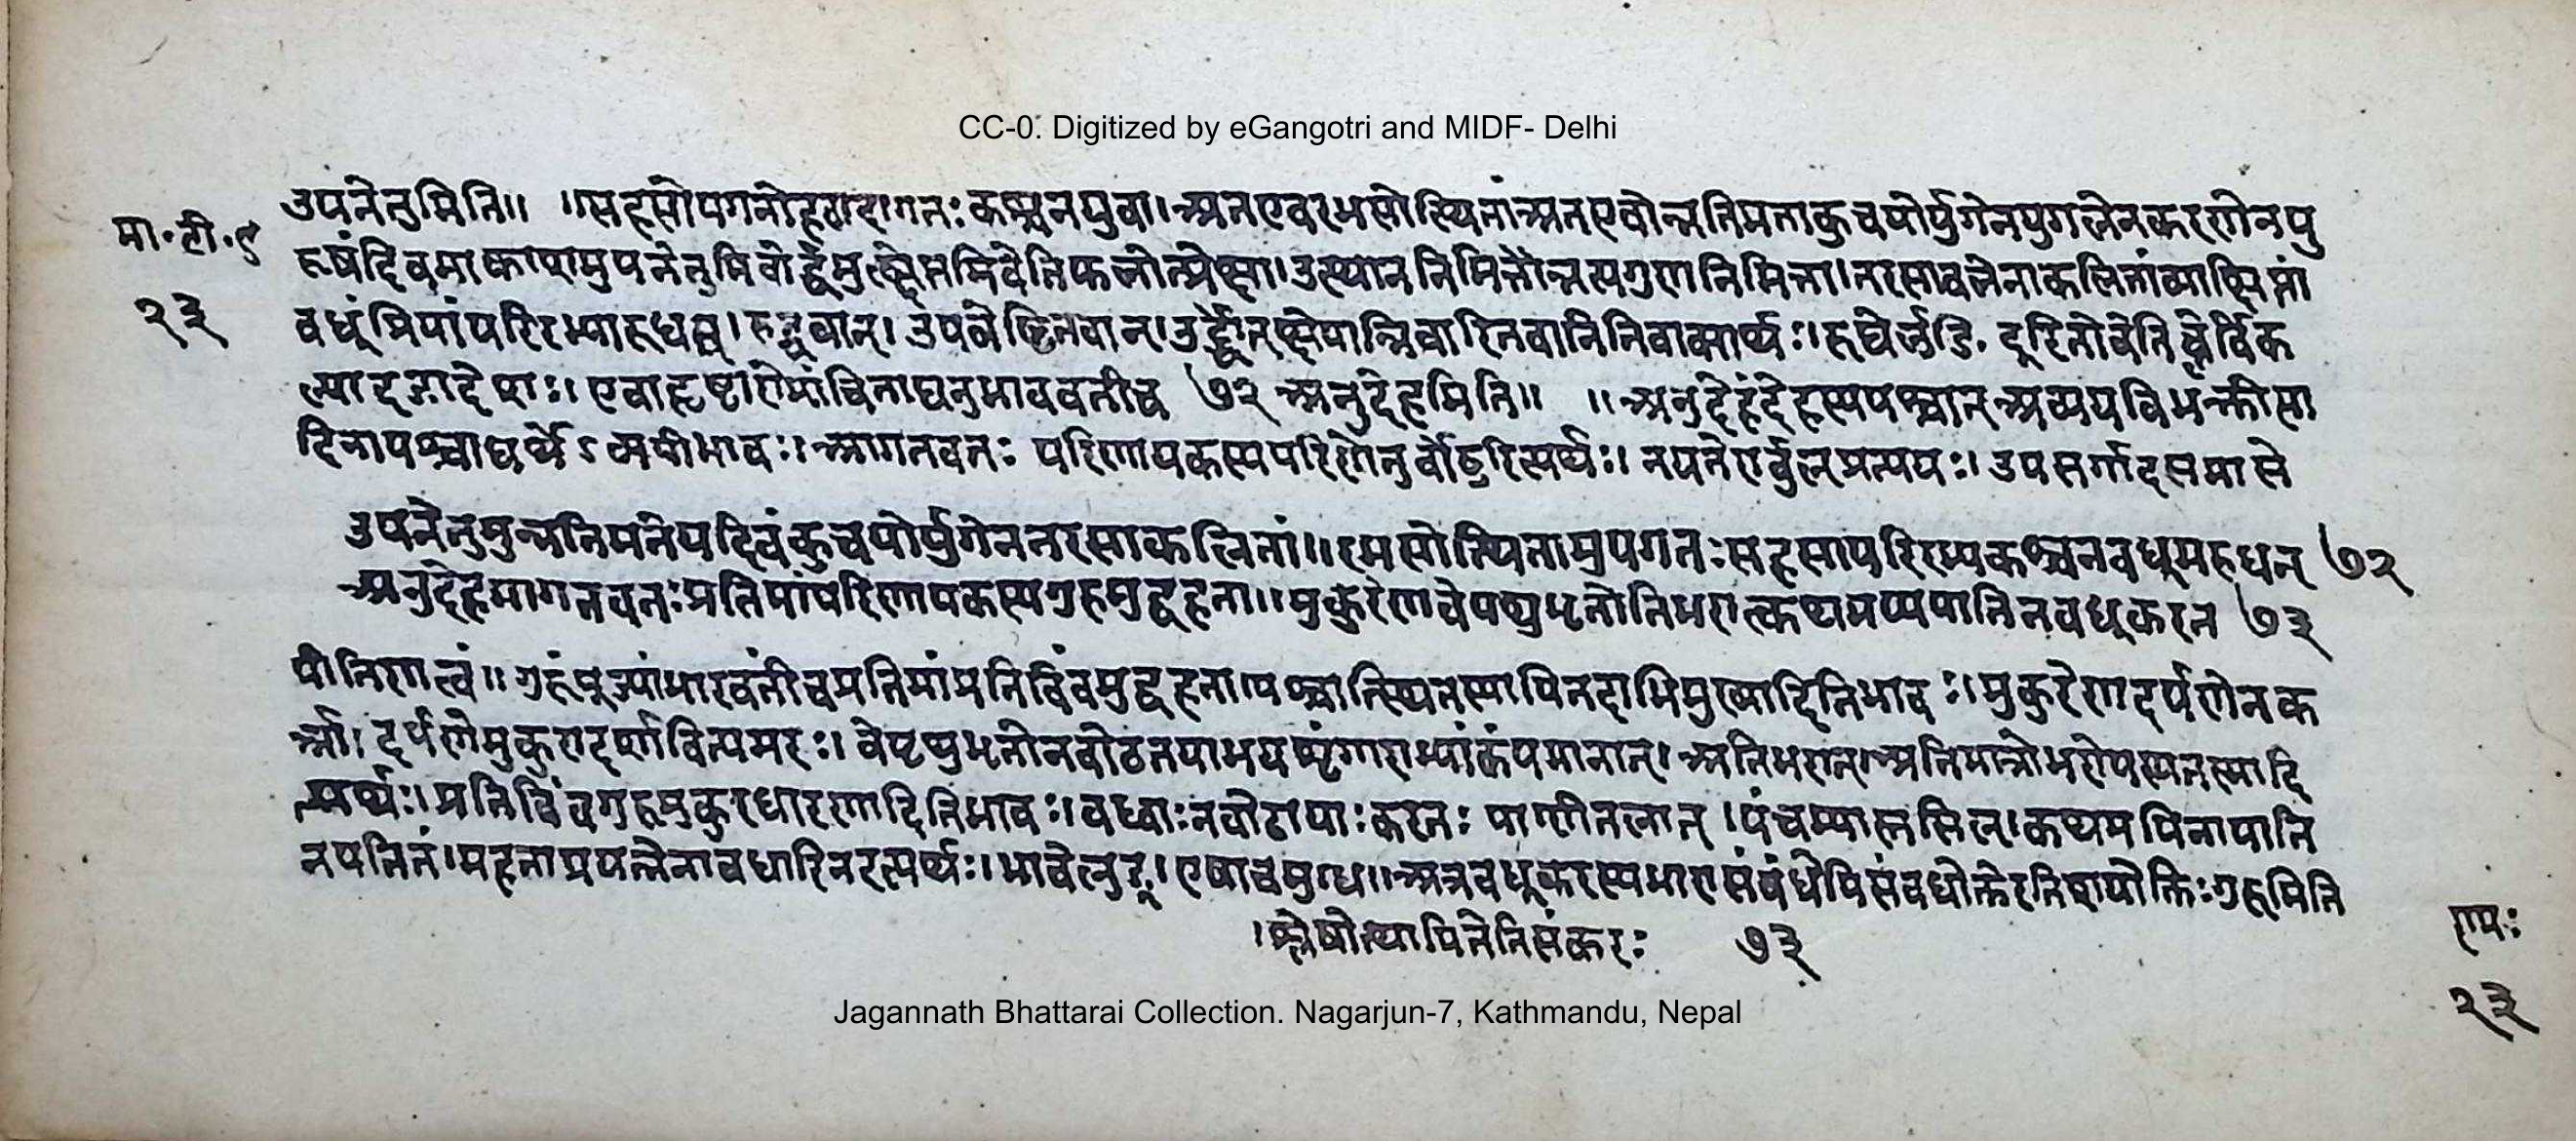 CC-0. Digitized by eGangotri and MIDF- Delhi
उपनेतुमिति॥ ॥सहसोपगतोहठादागतः कश्चनयुवा।अतएवरभसोत्थितांअतएवोन्नतिमताकुचयोर्युगेनयुगलेनकरणेनपु
मा॰टी॰९
रुषंदिवमाकाशमुपनेतुमिवोर्द्धमुत्क्षेप्तुमिवेतिफलोत्प्रेक्षा।उत्थाननिमित्तौन्नत्यगुणनिमित्ता।तरसाबलेनाकलितांव्याक्षिप्तां
२३
वधूंप्रियांपरिरभ्यारुधत्। रुद्धवान्। उपवेशितवान्।उर्द्ध्वोत्क्षेपान्निवारितवानितिवाक्यार्थः।रुधेर्लुङि॰ दूरितोवेतिच्लेर्विक
ल्पादङादेशः। एवाहृष्टारोमांचिताद्यनुभाववतीच ७२ अनुदेहमिति॥ ॥अनुदेहंदेहस्यपश्चात्अव्ययविभक्तीत्या
दिनापश्चाद्यर्थेऽव्ययीभावः। आगतवतः परिणायकस्यपरिणेतुर्वोढुरित्यर्थः। नयतेर्ण्वुल्प्रत्ययः। उपसर्गादसमासे
उपनेतुमुन्नतिमतेवदिवंकुचयोर्युगेनतरसाकलितां॥रभसोत्थितामुपगतः सहसापरिरभ्यकश्चनवधूमरुधत् ७२
अनुदेहमागतवतः प्रतिमांपरिणायकस्यगुरुमुद्वहता॥मुकुरेणवेपथुभृतोतिभरात्कथमप्यपातिनवधूकरत ७३
पीतिणत्वं॥ गुरुंपूज्यांभारवतींचप्रतिमांप्रतिबिंबमुद्वहता।पश्चात्स्थितस्यापितदाभिमुख्यादितिभावः। मुकुरेणदर्पणेनक
र्त्रा। दर्पणेमुकुरादर्शावित्यमरः। वेपथुभृतोनवोढतयाभयशृंगाराभ्यांकंपमानात्। अतिभरात्।अतिमात्रोभरोयस्यतस्मादि
त्यर्थः। प्रतिबिंबगुरुमुकुरधारणादितिभावः। वध्वाः नवोढायाः करतः पाणितलात् ।पंचम्यास्तसिल्।कथमपिनापाति
नपतितं।महताप्रयत्नेनावधारितइत्यर्थः। भावेलुङ्। एषाचमुग्धा॥अत्रवधूकरस्यभारासंबंधेपिसंबंधोक्तेरतिशयोक्तिः गुरुमिति
।श्लेषोत्थापितेतिसंकरः ७३
रामः
२३
Jagannath Bhattarai Collection. Nagarjun-7, Kathmandu, Nepal